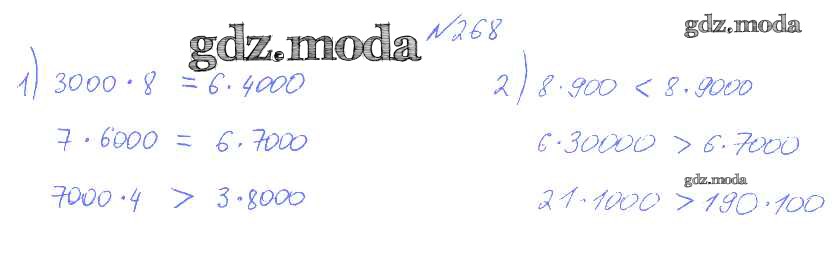 №268
gdz.moda
gdz.moda
1) 3000·8 = 6·4000
7·6000 = 6·7000
7000·4 > 3·8000
2) 8·900 < 8·9000
6·30000 > 6·7000
gdz.moda
21·1000 > 190·100